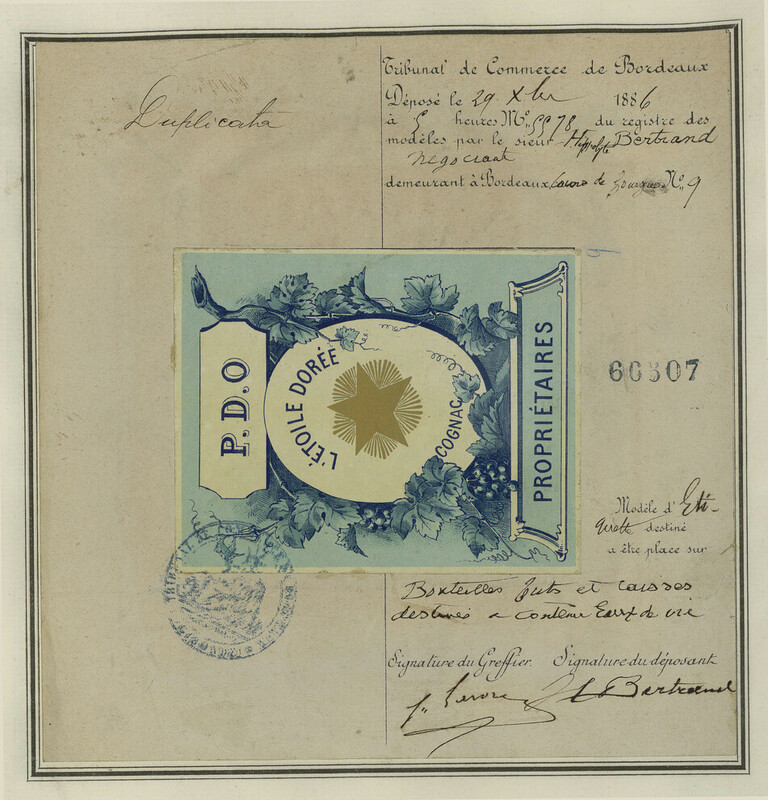 Duplicata
Tribunal de Commerce de Bordeaux
Déposé le 29 Xbre 1886
à 5 heures No. 5578 du registre des
modèles par le sieur Hippolyte Bertrand
négociant
demeurant à Bordeaux de No. 9
P.D.O
L'ÉTOILE DORÉE
COGNAC
PROPRIÉTAIRES
66307
Modèle d'Eti-
quette destiné
a être place sur
Bouteilles futs et caisses
destinés a contenir Eaux de vie
Signature du Greffier. Signature du déposant
Bertrand